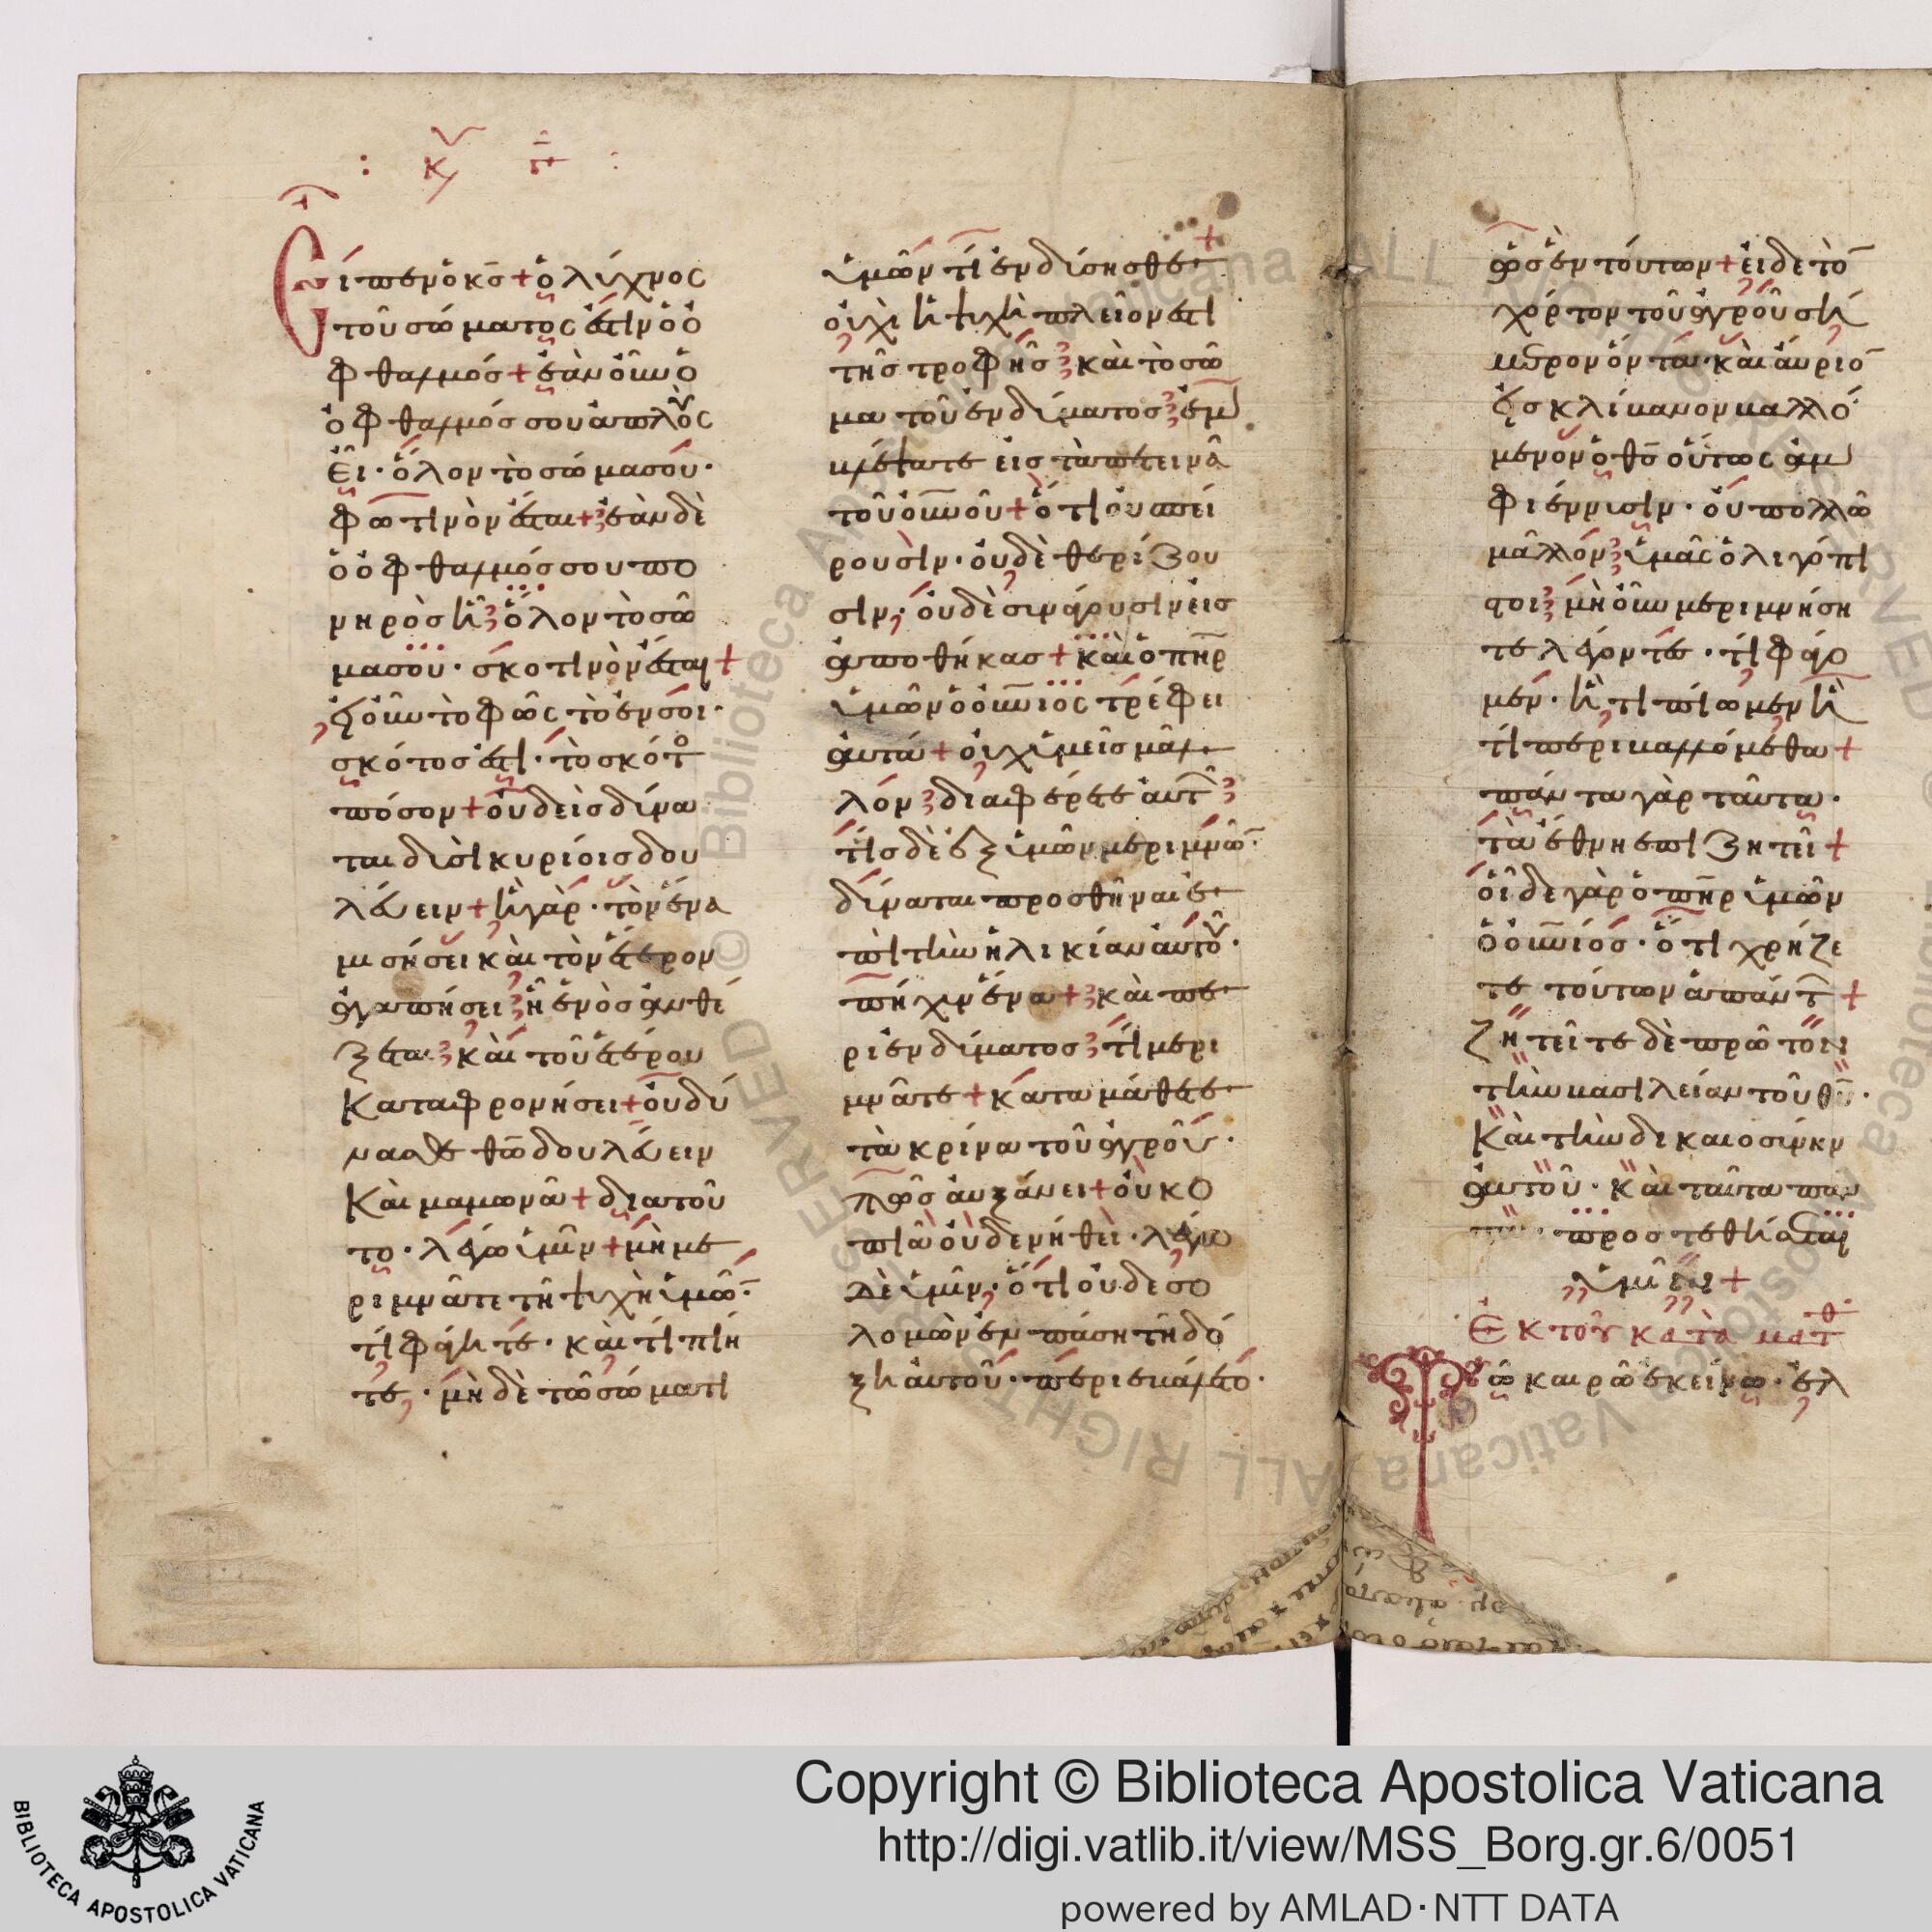 : κυ γ :
Εἶπεν ὁ κς + ὁ λύχνος
τοῦ σώματος ἐστὶν ὁ ὀ
φθαλμός + ἐὰν οὖν ὁ
ὀφθαλμός σου ἁπλοῦς
ἐῖ · ὅλον τὸ σώμα σοῦ ·
φωτινὸν ἔσται + ἐὰν δὲ
ὁ ὀφθαλμός σου πο
νηρὸς ἦ ὅλον τὸ σῶ
μα σοῦ · σκοτινὸν ἔσται +
εἰ οὖν τὸ φῶς τὸ ἐν σοι ·
σκότος ἐστὶ · τὸ σκότ
πόσον + οὐδεὶς δύνα
ται δυσὶ κυρίοις δου
λεύειν + ἢ γὰρ · τὸν ἕνα
μισήσει καὶ τὸν ἕτερον
ἀγαπήσει ἢ ἑνὸς ἀνθέ
ξεται καὶ τοῦ ἑτέρου
καταφρονήσει + οὐ δύ
νασθε θω δουλεύειν
καὶ μαμωνᾶ + διατοῦ
το · λέγω ὑμῖν + μὴ με
ριμνᾶτε τῆ ψυχῆ ὑμῶ ·
τί φάγητε · καὶ τί πίη
τε · μὴ δὲ τῶ σώματι
ὑμῶν τί ἐνδύσησθε +
οὐχὶ ἡ ψυχὴ πλεῖον ἐστὶ
τῆς τροφῆς καὶ τὸ σῶ
μα τοῦ ἐνδύματος ἐμ
βλέψατε εἰς τὰ πετεινὰ
τοῦ οὐνοῦ + ὅτι οὐ σπεί
ρουσιν · οὐδὲ θερίζου
σιν · οὐδὲ συνάγουσιν εἰς
ἀποθήκας + καὶ ὁ πηρ
ὑμῶν ὁ οὐνιος τρέφει
αὐτά + οὐχ ὑμεῖς μᾶλ
λον διαφέρετε αὐτ
τίς δὲ ἐξ ὑμῶν μεριμνῶ
δύναται προσθῆναι ἐ
πὶ τὴν ἡλικίαν αὐτοῦ ·
πήχυν ἕνα + καὶ πε
ρὶ ἐνδύματος τί μερι
μνᾶτε + καταμάθετε
τὰ κρίνα τοῦ ἀγροῦ ·
πῶς αὐξάνει + οὐ κο
πιᾶ οὐδὲ νήθει · λέγω
δὲ ὑμῖν · ὅτι οὐδὲ σο
λομὼν ἐν πάση τῆ δό
ξη αὐτοῦ · περιεβάλετο ·
ὡς ἓν τούτων + εἰ δὲ τὸ
χόρτον τοῦ ἀγροῦ σή
μερον ὄντα · καὶ αὔριο
εἰς κλίβανον βαλλό
μενον ὁ θς οὕτως ἀμ
φιέννυσιν · οὐ πολλῶ
μᾶλλον ὑμᾶς ὀλιγόπι
στοι μὴ οὖν μεριμνήση
τε λέγοντες · τί φάγο
μεν · ἢ τί πίωμεν ἢ
τί περιβαλλόμεθα +
πάντα γὰρ ταῦτα ·
τὰ ἔθνη ἐπιζητεῖ +
οἶδε γὰρ ὁ πηρ ὑμῶν
ὁ οὐνιός · ὅτι χρήζε
τε τούτων ἁπάντ +
ζητεῖτε δὲ πρῶτον
τὴν βασιλείαν τοῦ θυ ·
καὶ τὴν δικαιοσύνην
αὐτοῦ · καὶ ταῦτα πάν
τα · προστεθήσεται
ὑμῖν +
Ἐκ τοῦ κατὰ ματθ
Τῶ καιρῶ ἐκείνω · ἐλ
ALL RIGHTS RESERVED © Biblioteca Apostolica Vaticana
BIBLIOTECA APOSTOLICA VATICANA
Copyright © Biblioteca Apostolica Vaticana
http://digi.vatlib.it/view/MSS_Borg.gr.6/0051
powered by AMLAD·NTT DATA